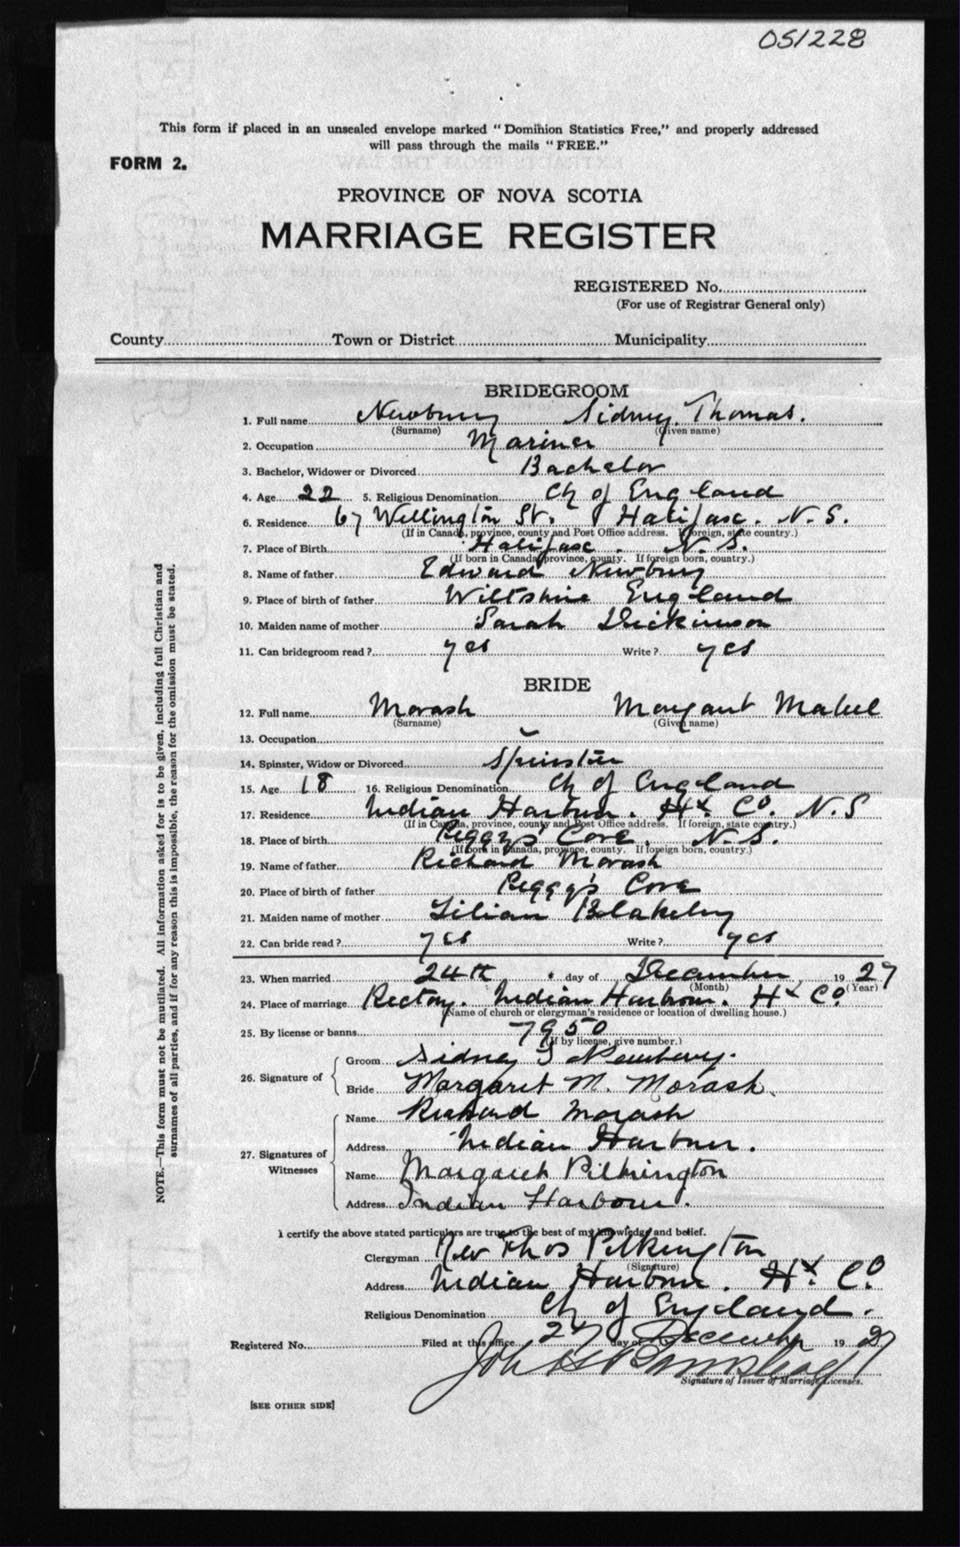 051228
This form if placed in an unsealed envelope marked "Dominion Statistics Free," and properly addressed
will pass through the mails "FREE."
FORM 2.
PROVINCE OF NOVA SCOTIA
MARRIAGE REGISTER
REGISTERED No.
(For use of Registrar General only)
County Town or District Municipality
BRIDEGROOM
1. Full name Newbury Sidney Thomas.
(Surname) (Given name)
2. Occupation Mariner
3. Bachelor, Widower or Divorced Bachelor
4. Age 22 5. Religious Denomination Ch of England
6. Residence 67 Wellington St. Halifax. N.S.
(If in Canada, province, county and Post Office address. If foreign, state country.)
7. Place of Birth Halifax. N.S.
(If born in Canada, province, county. If foreign born, country.)
8. Name of father Edward Newbury
9. Place of birth of father Wiltshire England
10. Maiden name of mother Sarah Dickinson
11. Can bridegroom read? yes Write? yes
BRIDE
12. Full name Morash Margaret Mabel
(Surname) (Given name)
13. Occupation
14. Spinster, Widow or Divorced Spinster
15. Age 18 16. Religious Denomination Ch of England
17. Residence Indian Harbour. Hx Co. N.S
(If in Canada, province, county and Post Office address. If foreign, state country.)
18. Place of birth Peggy's Cove. N.S.
(If born in Canada, province, county. If foreign born, country.)
19. Name of father Richard Morash
20. Place of birth of father Peggy's Cove
21. Maiden name of mother Lilian Blakeley
22. Can bride read? yes Write? yes
23. When married 24th day of December 1927
(Month) (Year)
24. Place of marriage Rectory. Indian Harbour. Hx Co.
(Name of church or clergyman's residence or location of dwelling house.)
25. By license or banns 7950
(If by license, give number.)
26. Signature of Groom Sidney T Newbury.
Bride Margaret M. Morash.
27. Signatures of Witnesses Name Richard Morash
Address Indian Harbour.
Name Margaret Pilkington
Address Indian Harbour.
I certify the above stated particulars are true to the best of my knowledge and belief.
Clergyman Rev Thos Pilkington
(Signature)
Address Indian Harbour. Hx. Co
Religious Denomination Ch of England.
Registered No. Filed at this office 27 day of December 1927
Signature of Issuer of Marriage Licenses.
[SEE OTHER SIDE]
NOTE.—This form must not be mutilated. All information asked for is to be given, including full Christian and
surnames of all parties, and if for any reason this is impossible, the reason for the omission must be stated.